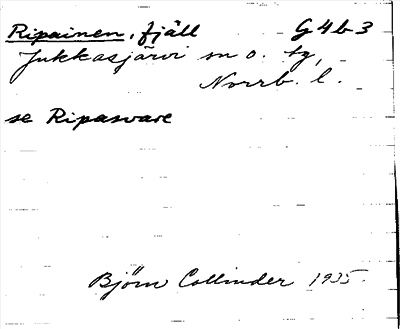 Ripainen, fjäll G4b3
Jukkasjärvi sn o. tg,
Norrb. l.
se Ripasvare
Björn Collinder 1935